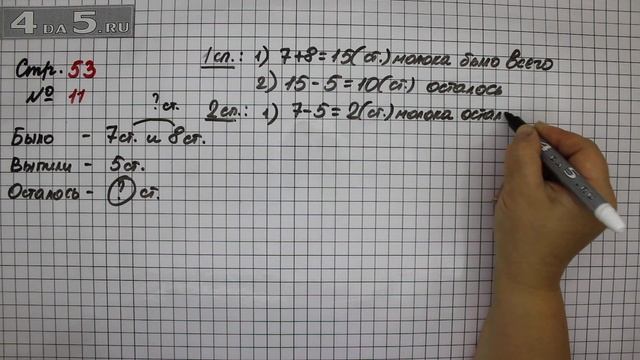 4 DA 5.RU
Стр. 53
№ 11
? ст.
Было - 7ст. и 8ст.
Выпили - 5ст.
Осталось - ? ст.
1 сп.: 1) 7+8=15(ст.) молока было всего
2) 15-5=10(ст.) осталось
2 сп.: 1) 7-5=2(ст.) молока остал